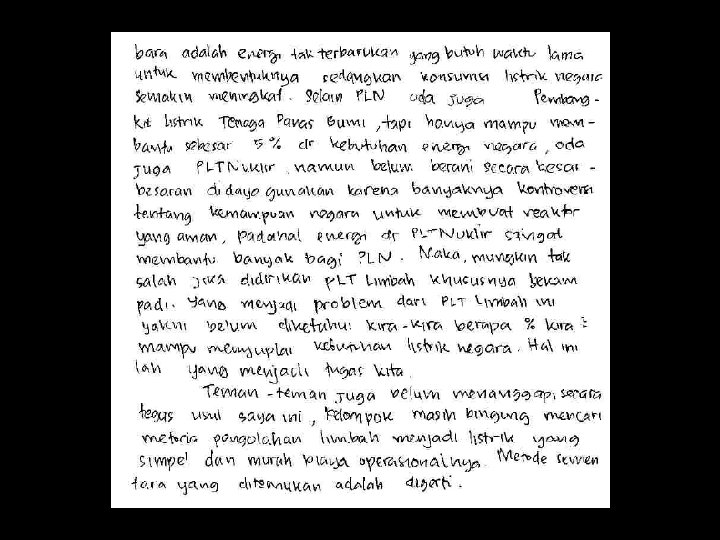 bara adalah energi tak terbarukan yang butuh waktu lama
untuk membentuknya sedangkan konsumsi listrik negara
semakin meningkat. Selain PLN ada juga Pembang-
kit listrik Tenaga Panas Bumi, tapi hanya mampu mem-
bantu sebesar 5% dr kebutuhan energi negara, ada
juga PLTNuklir, namun belum berani secara besar-
besaran didaya gunakan karena banyaknya kontroversi
tentang kemampuan negara untuk membuat reaktor
yang aman, padahal energi dr PLTNuklir sangat
membantu banyak bagi PLN. Maka, mungkin tak
salah jika didirikan PLT Limbah khususnya sekam
padi. Yang menjadi problem dari PLT Limbah ini
yakni belum diketahui kira-kira berapa % kira2
mampu menyuplai kebutuhan listrik negara. Hal ini
lah yang menjadi tugas kita.
Teman-teman juga belum menanggapi secara
tegas usul saya ini, kelompok masih bingung mencari
metode pengolahan limbah menjadi listrik yang
simpel dan murah biaya operasionalnya. Metode semen
tara yang ditemukan adalah digesti.